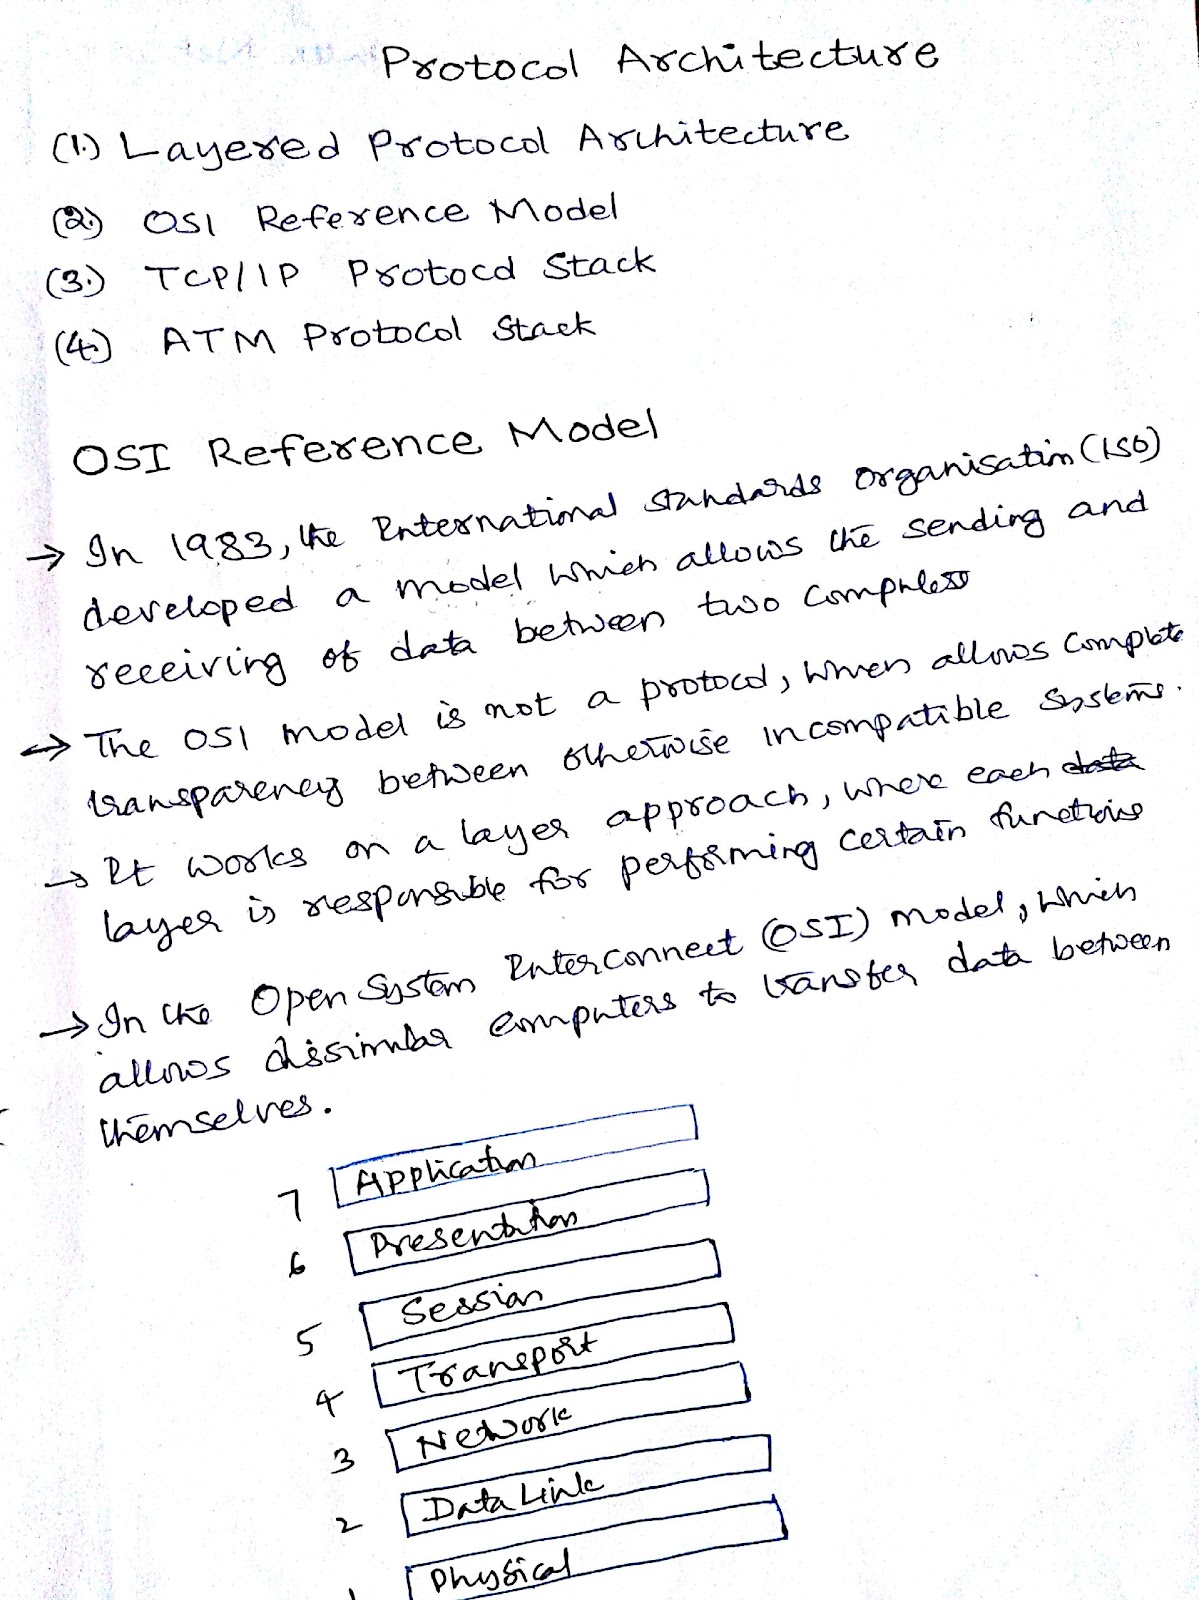 Protocol Architecture
(1.) Layered Protocol Architecture
(2.) OSI Reference Model
(3.) TCP/IP Protocol Stack
(4.) ATM Protocol Stack
OSI Reference Model
→ In 1983, the International standards Organisation (ISO)
developed a model which allows the sending and
receiving of data between two
→ The OSI model is not a protocol, which allows complete
transparency between otherwise incompatible systems.
→ It works on a layer approach, where each data
layer is responsible for performing certain functions
→ In the Open System Interconnect (OSI) model, which
allows dissimilar computers to transfer data between
themselves.
7 Application
6 Presentation
5 Session
4 Transport
3 Network
2 Data Link
1 Physical